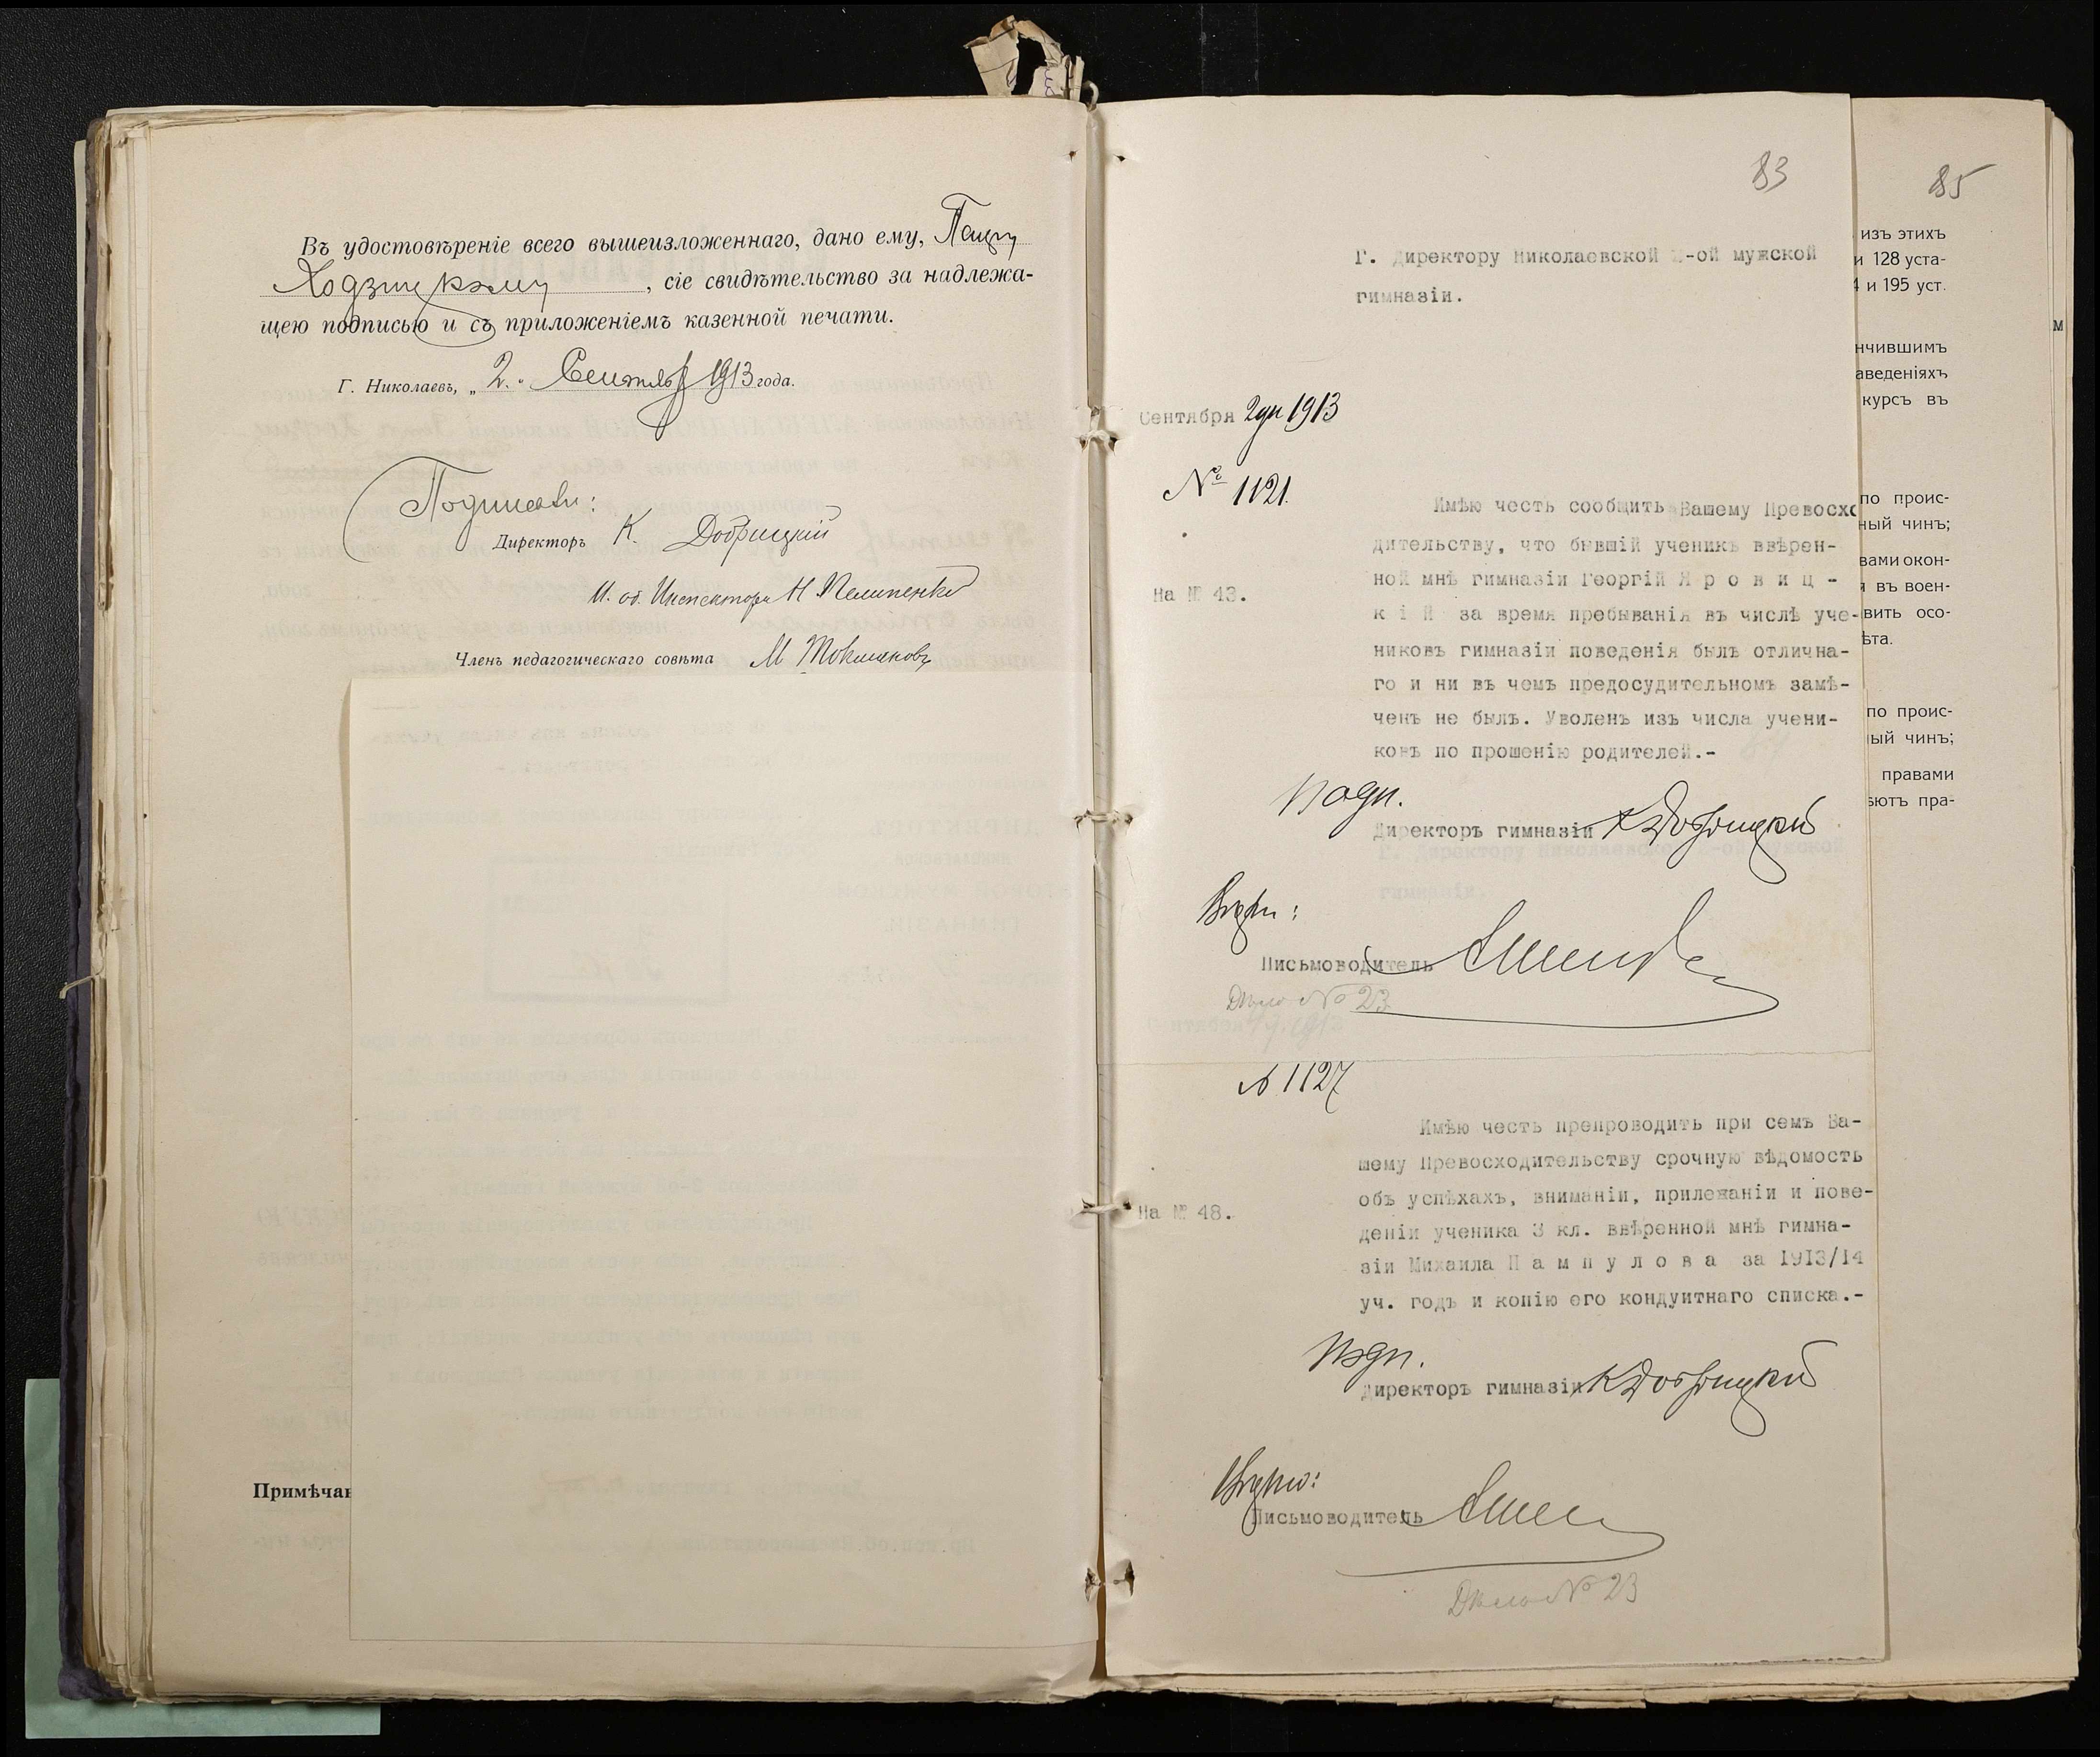 Въ удостовѣреніе всего вышеизложеннаго, дано ему,
Ходзицкому, сіе свидѣтельство за надлежа-
щею подписью и съ приложеніемъ казенной печати.
Г. Николаевъ, „2." Сентября 1913 года.
Подписали:
Директоръ К. Добрицкій
И. об. Инспектора Н Пелипенко
Членъ педагогическаго совѣта М Токмаковъ
Примѣчан
83
Г. Директору Николаевской 2-ой мужской
гимназіи.
Сентября 2 дн 1913
№ 1121.
На № 43.
Имѣю честь сообщить Вашему Превосхо
дительству, что бывшій ученикъ ввѣрен-
ной мнѣ гимназіи Георгій Я р о в и ц -
к і й за время пребыванія въ числѣ уче-
никовъ гимназіи поведенія былъ отлична-
го и ни въ чемъ предосудительномъ замѣ-
ченъ не былъ. Уволенъ изъ числа учени-
ковъ по прошенію родителей.-
Подп.
Директоръ гимназіи К Добрицкій
Вѣрн:
Письмоводитель
Дѣло № 23
Г. Директору Николаевской 2-ой мужской
гимназіи.
Сентября 1913
№ 1127
На № 48.
Имѣю честь препроводить при семъ Ва-
шему Превосходительству срочную вѣдомость
объ успѣхахъ, вниманіи, прилежаніи и пове-
деніи ученика 3 кл. ввѣренной мнѣ гимна-
зіи Михаила П а м п у л о в а за 1913/14
уч. годъ и копію его кондуитнаго списка.-
Подп.
Директоръ гимназіи К Добрицкій
Вѣрно:
Письмоводитель
Дѣло № 23
85
изъ этихъ
и 128 уста-
4 и 195 уст.
нчившимъ
аведеніяхъ
курсъ въ
по проис-
ный чинъ;
вами окон-
я въ воен-
вить осо-
ѣта.
по проис-
ый чинъ;
правами
ѣютъ пра-
м